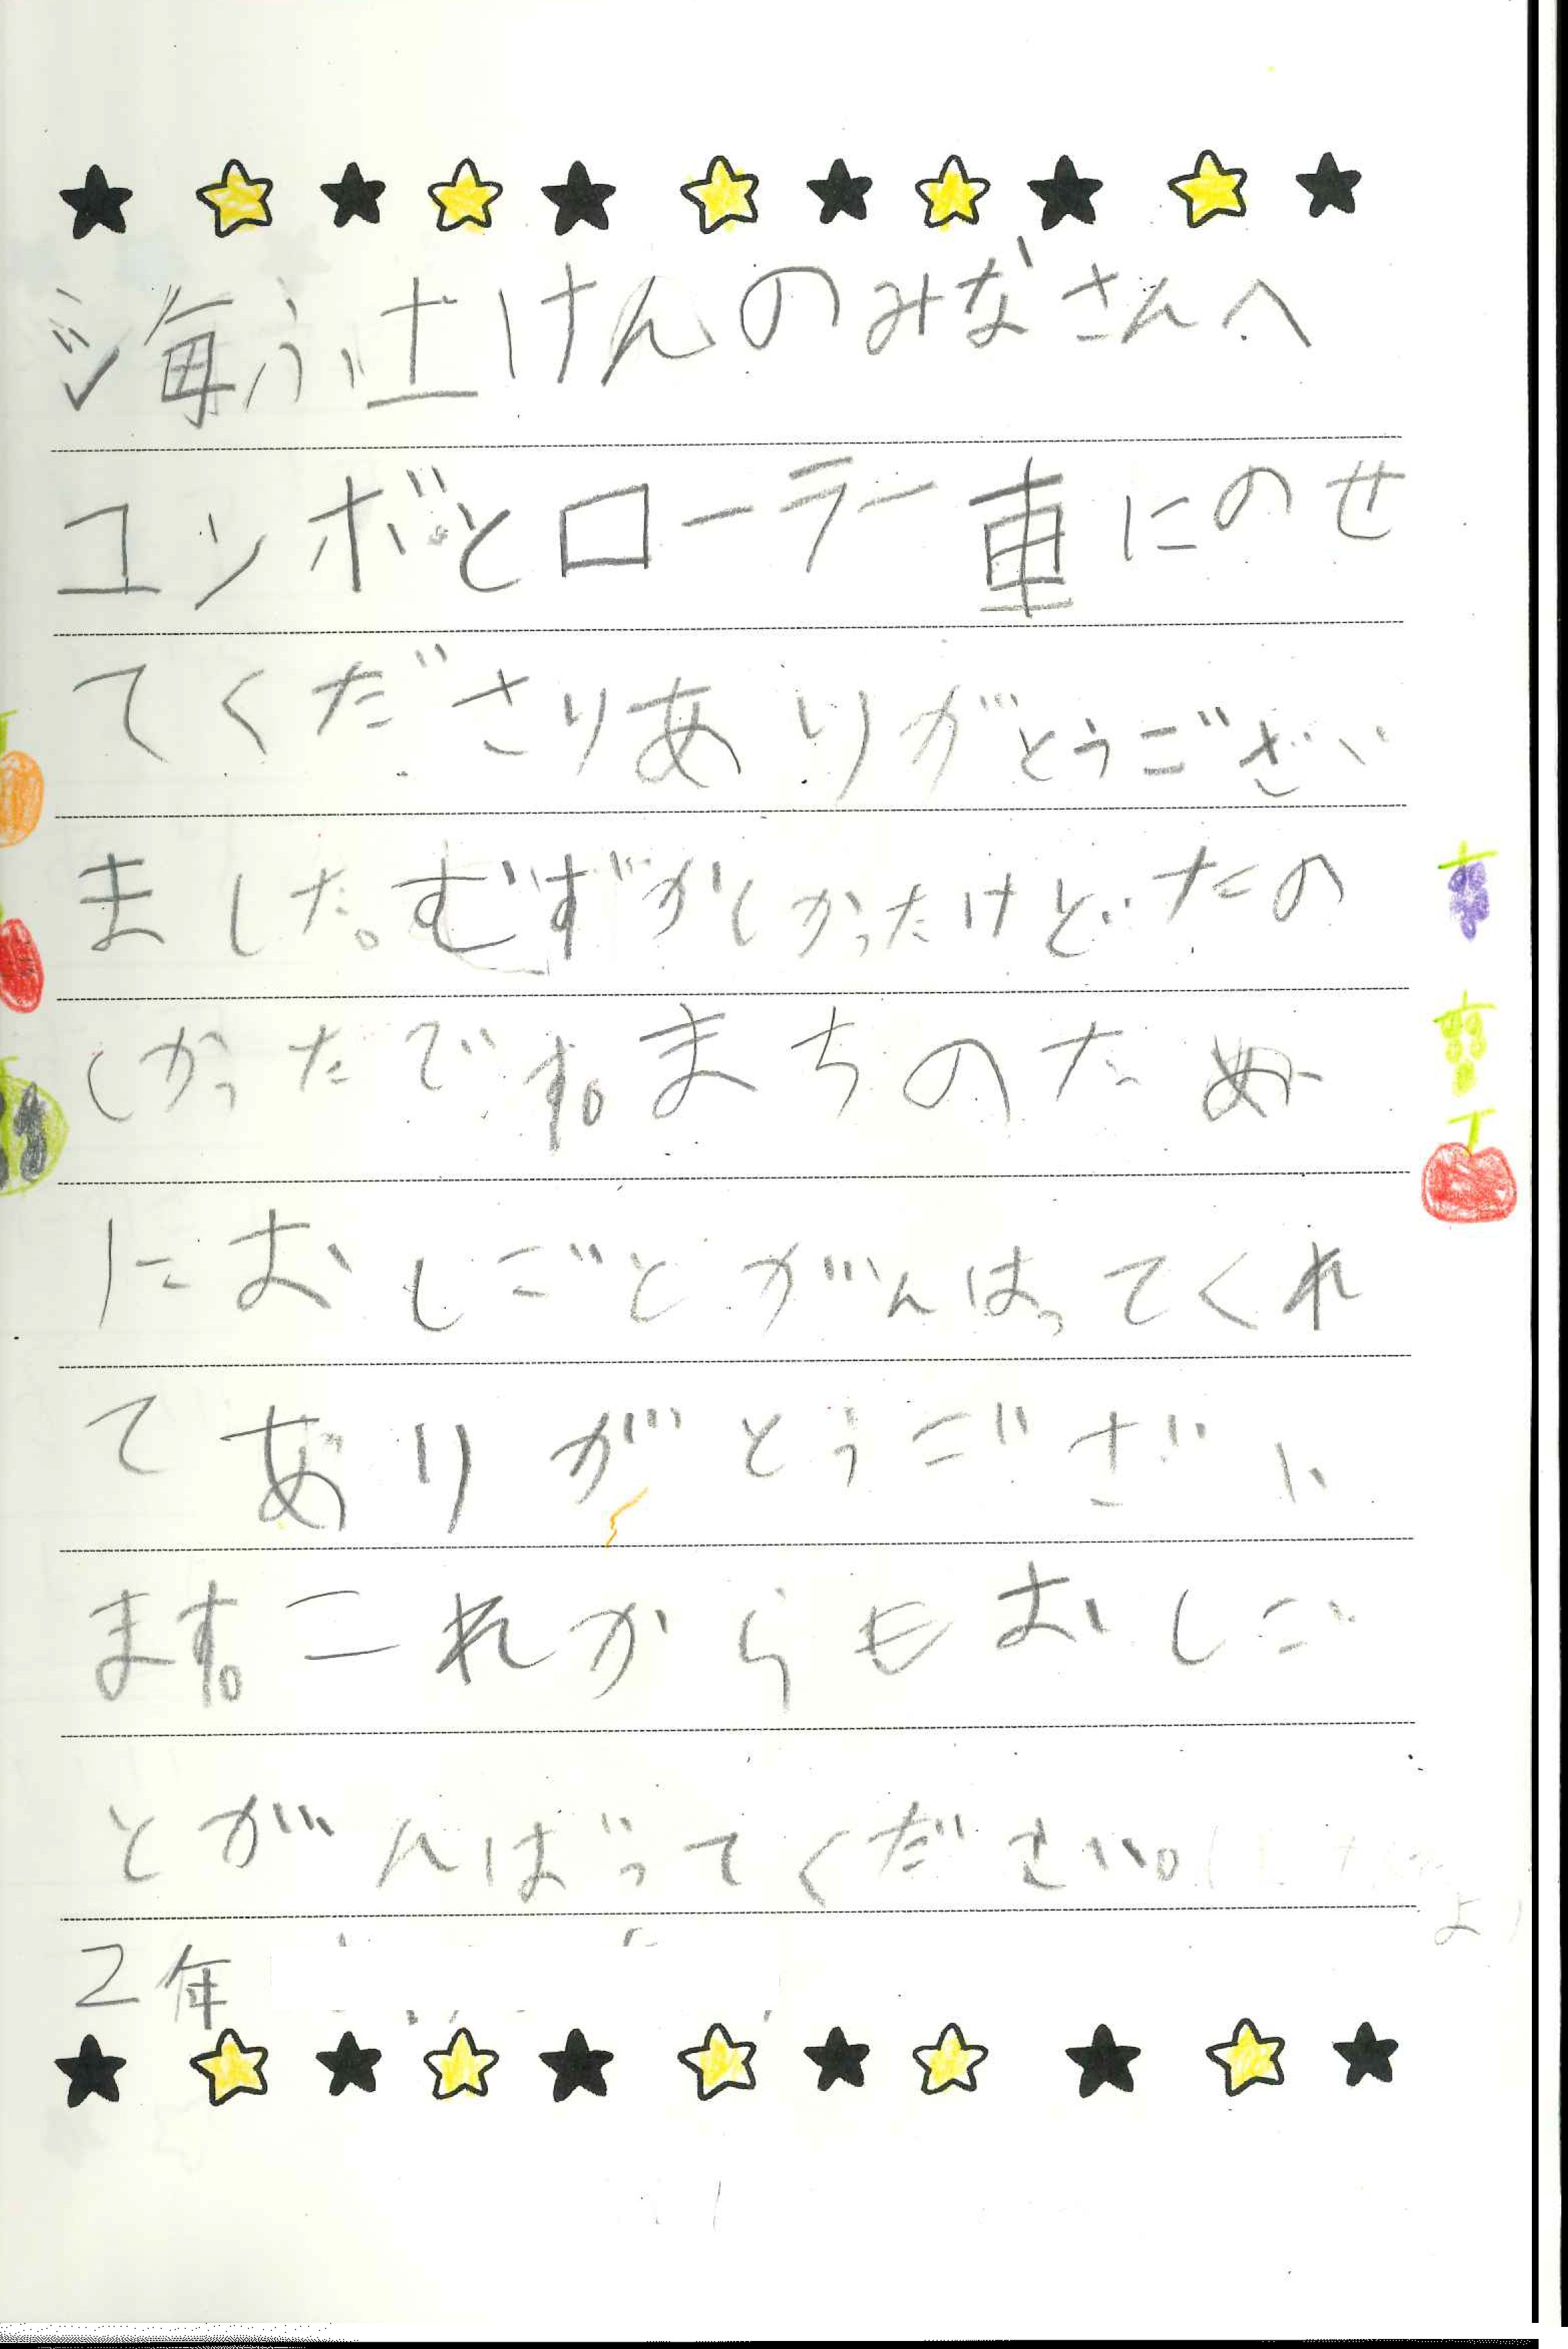 海ふ土けんのみなさんへ
ユンボとローラー車にのせ
てくださりありがとうござい
ました。むずがしかったけどたの
しかったです。まちのため
におしごとがんはってくれ
てありがとうござい
ます。これからもおしご
とがんばってください。
2年